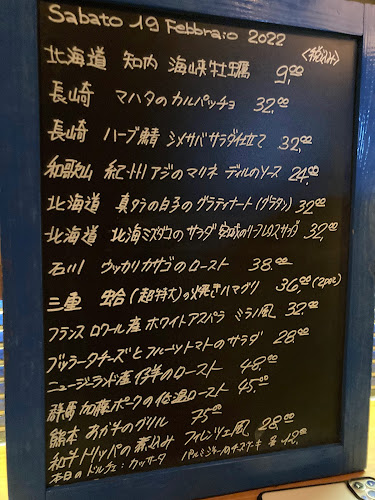 Sabato 19 Febbraio 2022
<税込み>
北海道 知内 海峡牡蠣 9.00
長崎 マハタのカルパッチョ 32.00
長崎 ハーブ鯖 シメサバサラダ仕立て 32.00
和歌山 紀州アジのマリネ ディルのソース 24.00
北海道 真タラの白子のグラティナート(グラタン) 32.00
北海道 北海ミズダコのサラダ 宮城のリーフレタスサラダ 32.00
石川 ウッカリカサゴのロースト 38.00
三重 蛤(超特大)の焼きハマグリ 36.00(2pcs)
フランス ロワール産 ホワイトアスパラ ミラノ風 32.00
ブッラータチーズとフルーツトマトのサラダ 28.00
ニュージーランド産 仔羊のロースト 48.00
群馬 加藤ポークの低温ロースト 45.00
熊本 あか牛のグリル 75.00
和牛トリッパの煮込み フィレンツェ風 28.00
本日のドルチェ:カッサータ パルミジャーノのチーズケーキ 各